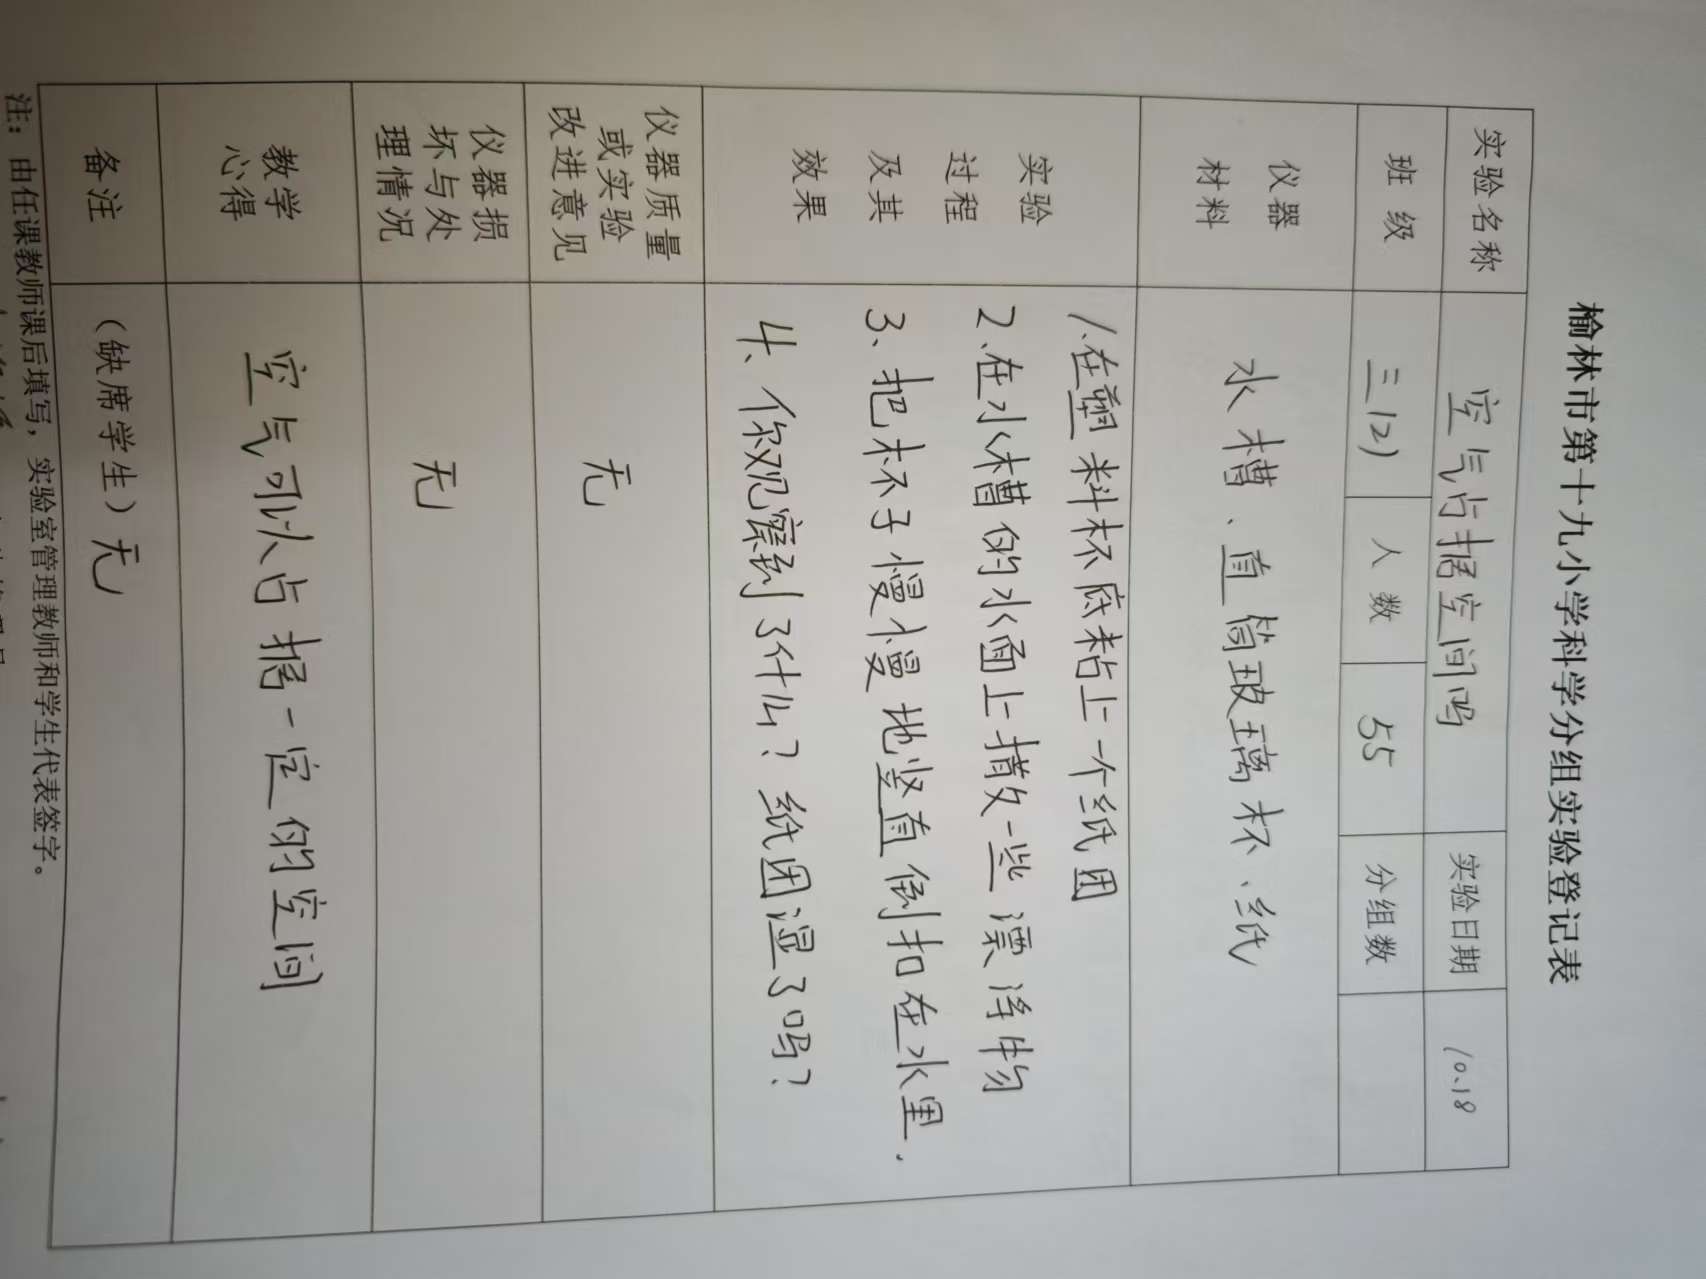 榆林市第十九小学科学分组实验登记表
实验名称 空气占据空间吗 实验日期 10.18
班级 三(2) 人数 55 分组数
仪器
材料
水槽、直筒玻璃杯、纸
实验
过程
及其
效果
1、在塑料杯底粘上一个纸团
2、在水槽的水面上撒一些漂浮物
3、把杯子慢慢地竖直倒扣在水里.
4、你观察到了什么？纸团湿了吗？
仪器质量
或实验
改进意见
无
仪器损
坏与处
理情况
无
教学
心得
空气可以占据一定的空间
备注
（缺席学生）无
注：由任课教师课后填写，实验室管理教师和学生代表签字。